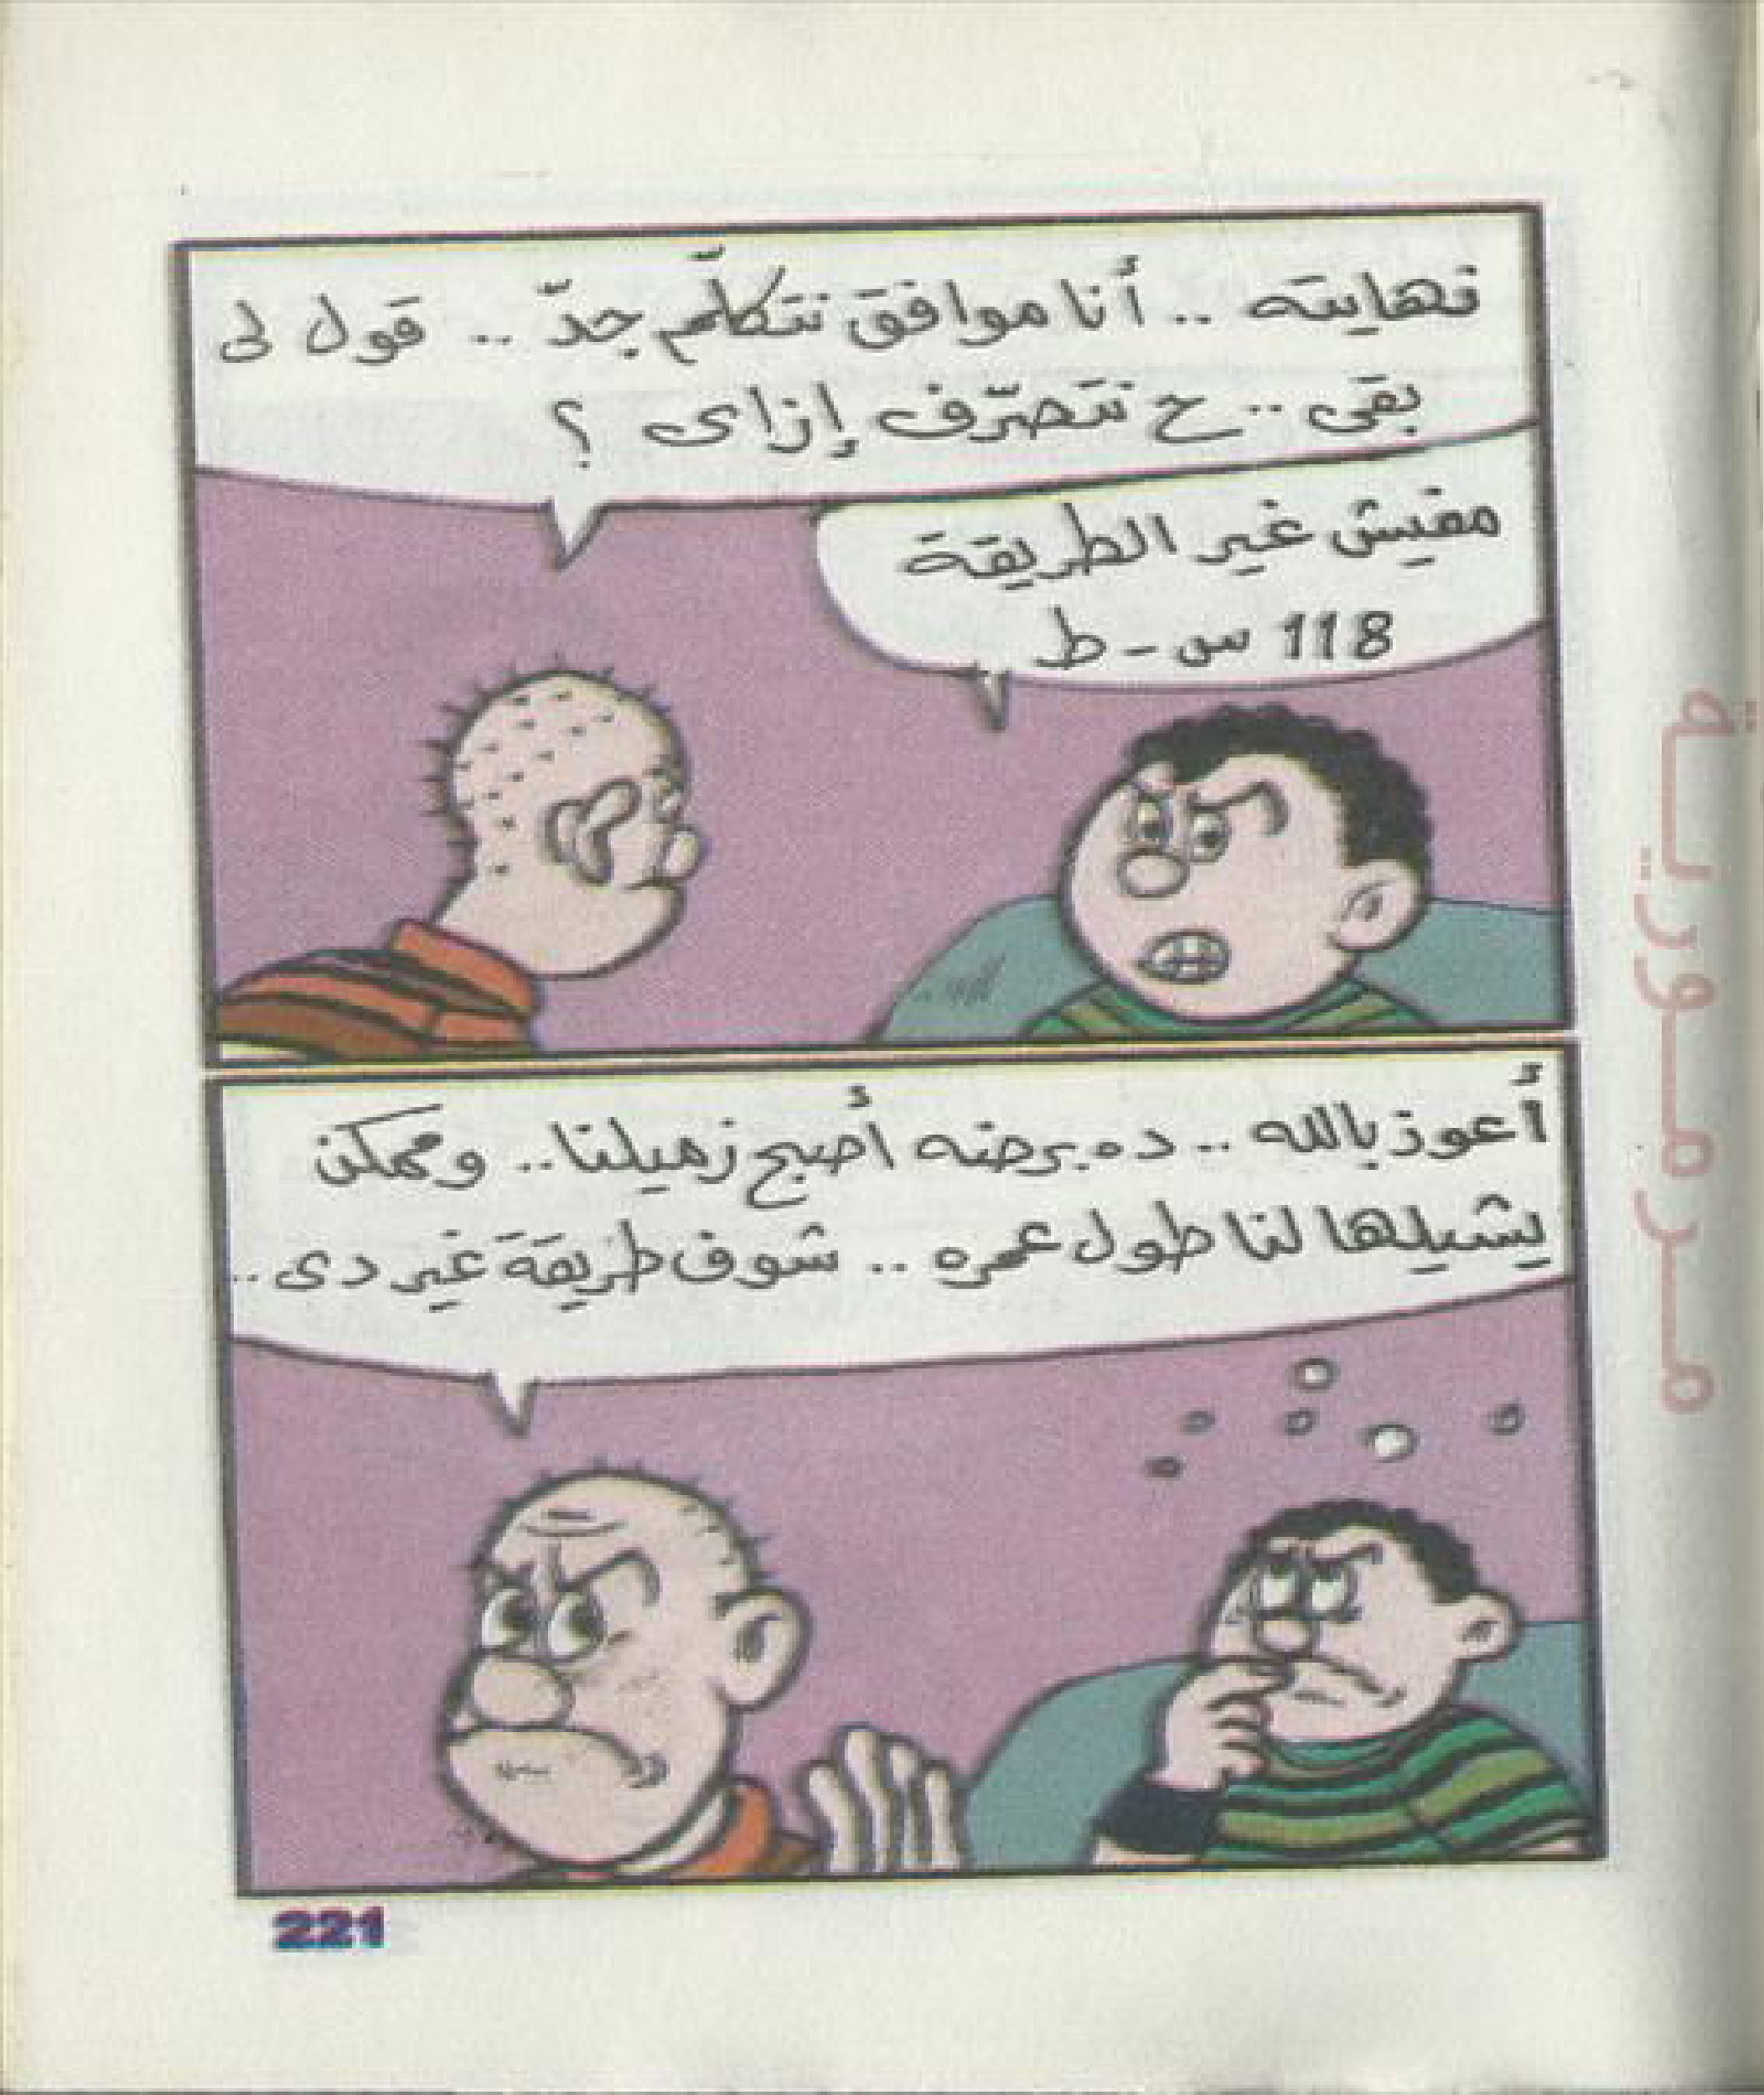 نهايته .. أنا موافق نتكلّم جدّ .. قول لى
بقى .. ح نتصرّف إزاى ؟
مفيش غير الطريقة
118 س - ط
أعوذ بالله .. ده برضه أصبح زميلنا .. وممكن
يشيلها لنا طول عمره .. شوف طريقة غير دى ..
221
مرمورية